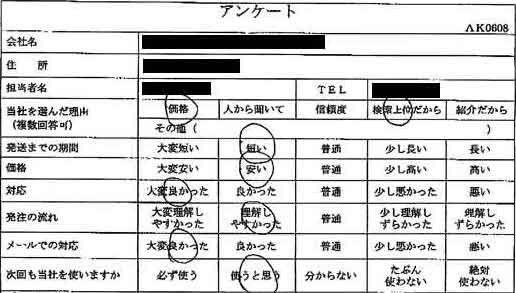 アンケート
AK0608
会社名
住 所
担当者名 TEL
当社を選んだ理由 (複数回答可) 価格 人から聞いて 信頼度 検索上位だから 紹介だから
その他( )
発送までの期間 大変短い 短い 普通 少し長い 長い
価格 大変安い 安い 普通 少し高い 高い
対応 大変良かった 良かった 普通 少し悪かった 悪い
発注の流れ 大変理解しやすかった 理解しやすかった 普通 少し理解しずらかった 理解しずらかった
メールでの対応 大変良かった 良かった 普通 少し悪かった 悪い
次回も当社を使いますか 必ず使う 使うと思う 分からない たぶん使わない 絶対使わない